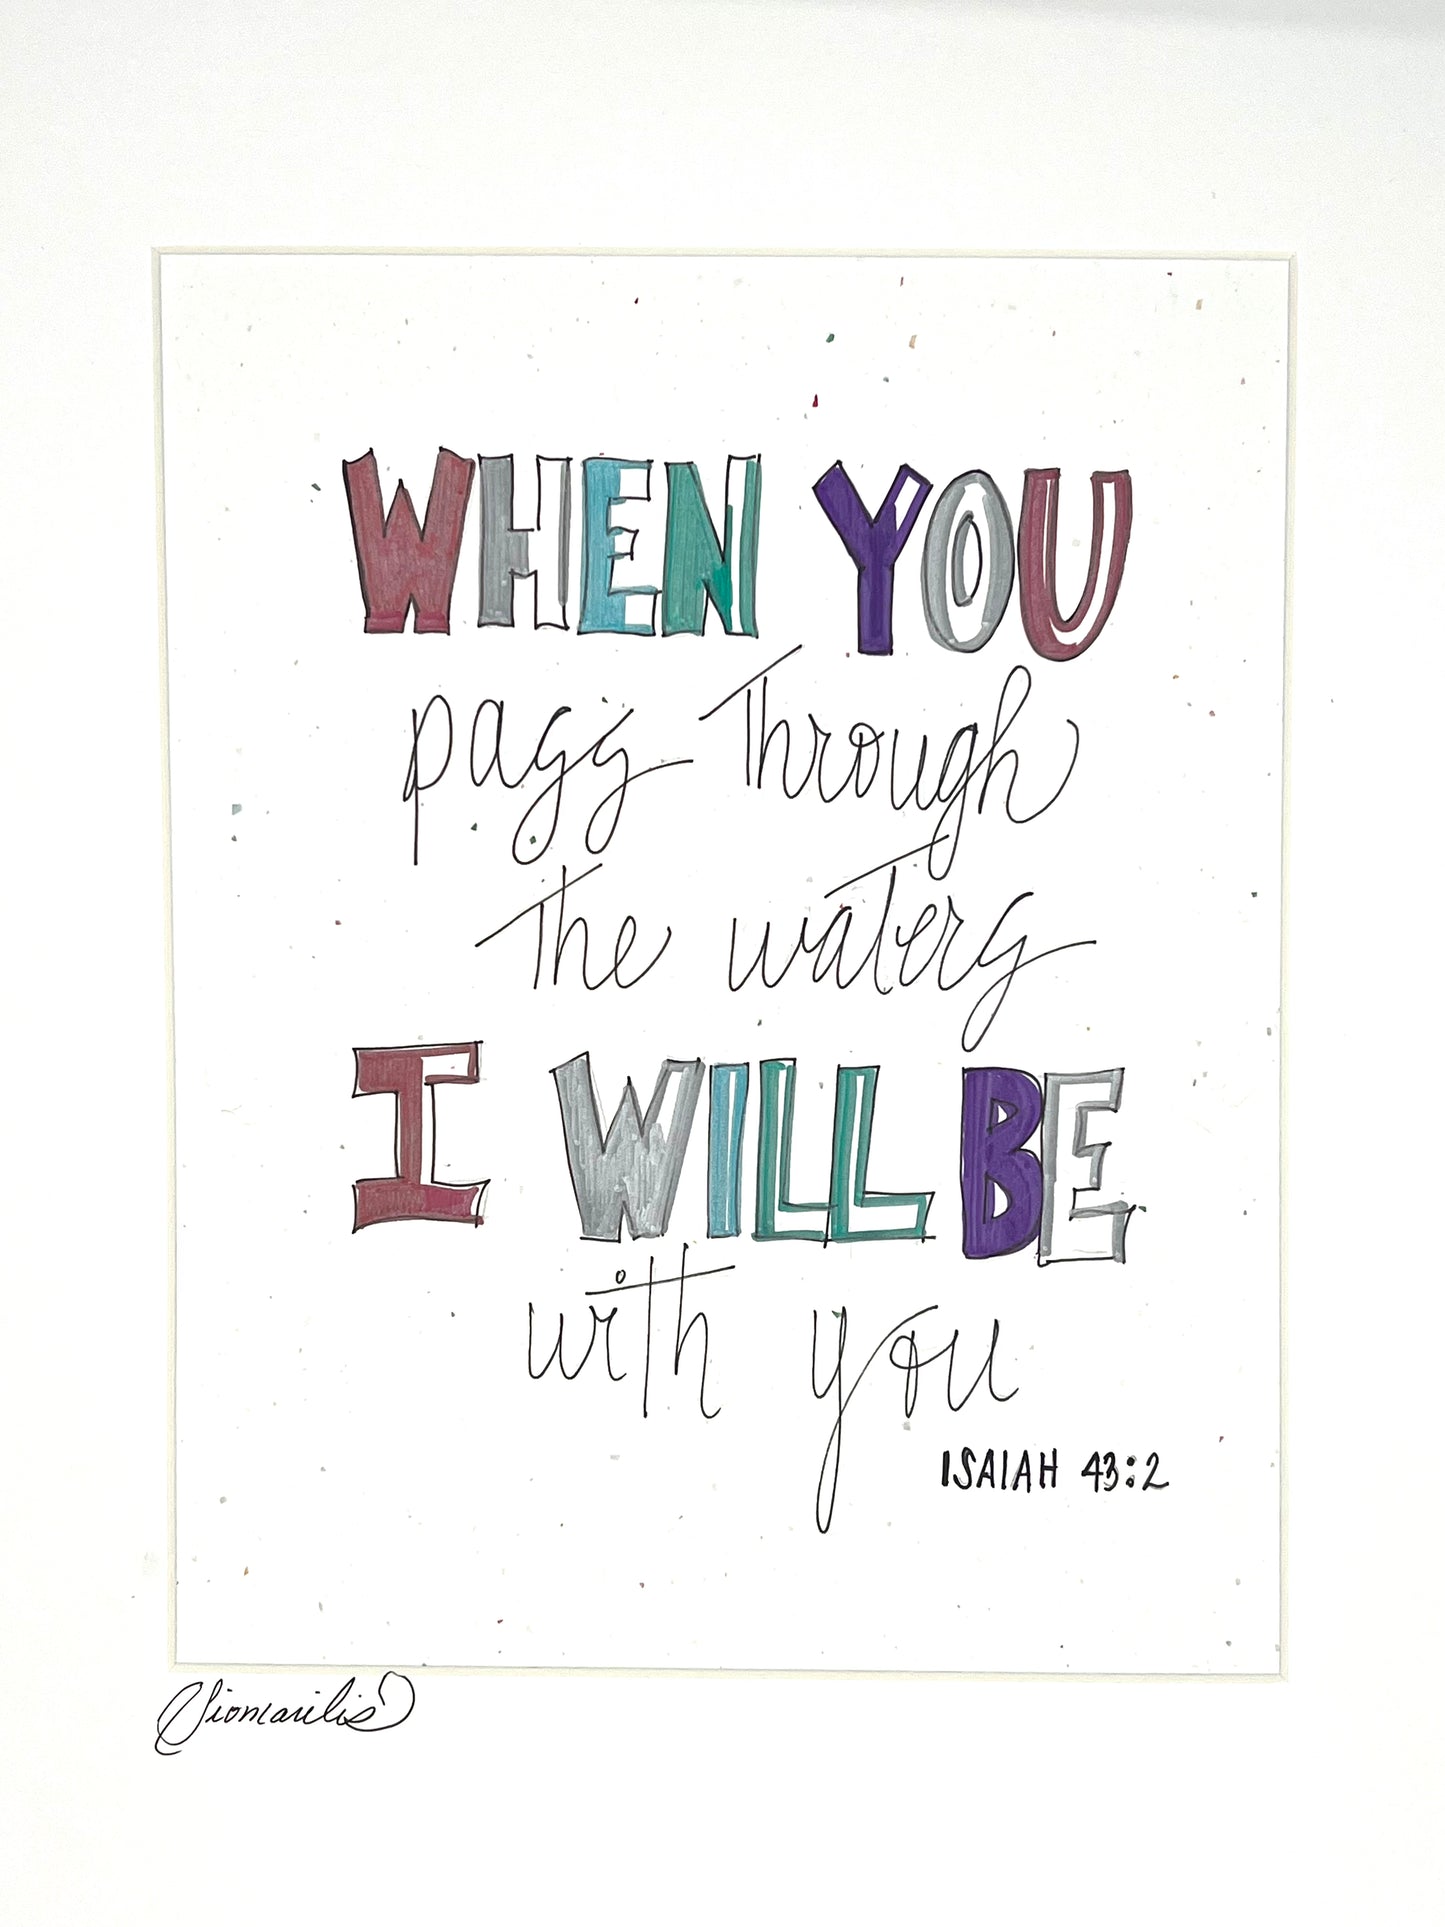 WHEN YOU
pass Through
The waters
I WILL BE
with you
ISAIAH 43:2